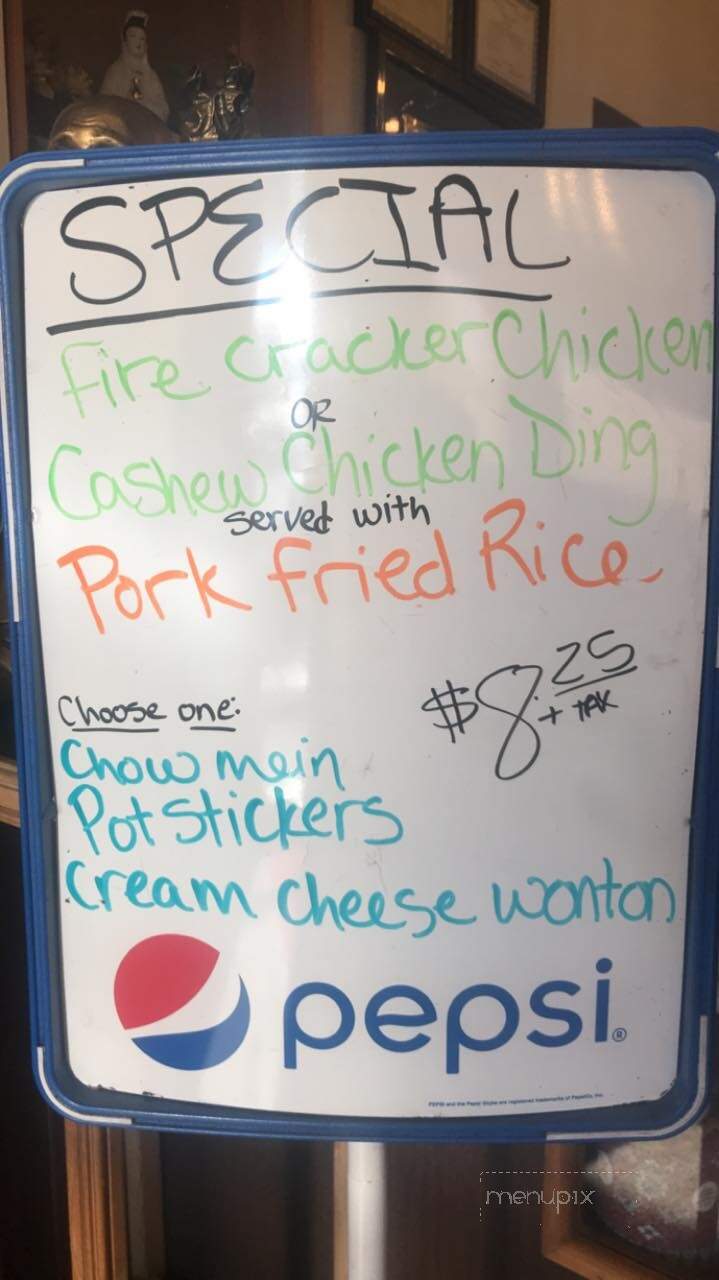 SPECIAL
Fire cracker Chicken
OR
Cashew Chicken Ding
served with
Pork Fried Rice
$8.25
+ TAX
Choose one:
Chow mein
Pot Stickers
Cream cheese wonton
pepsi®
PEPSI and the Pepsi Globe are registered trademarks of PepsiCo, Inc.
menupix